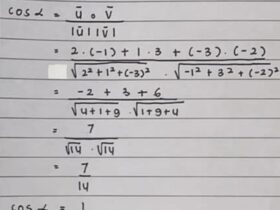 cos α = ū o v̄
|ū| |v̄|
= 2·(-1) + 1·3 + (-3)·(-2)
√2² + 1² + (-3)² · √-1² + 3² + (-2)²
= -2 + 3 + 6
√4+1+9 · √1+9+4
= 7
√14 · √14
= 7
14
cos α = 1